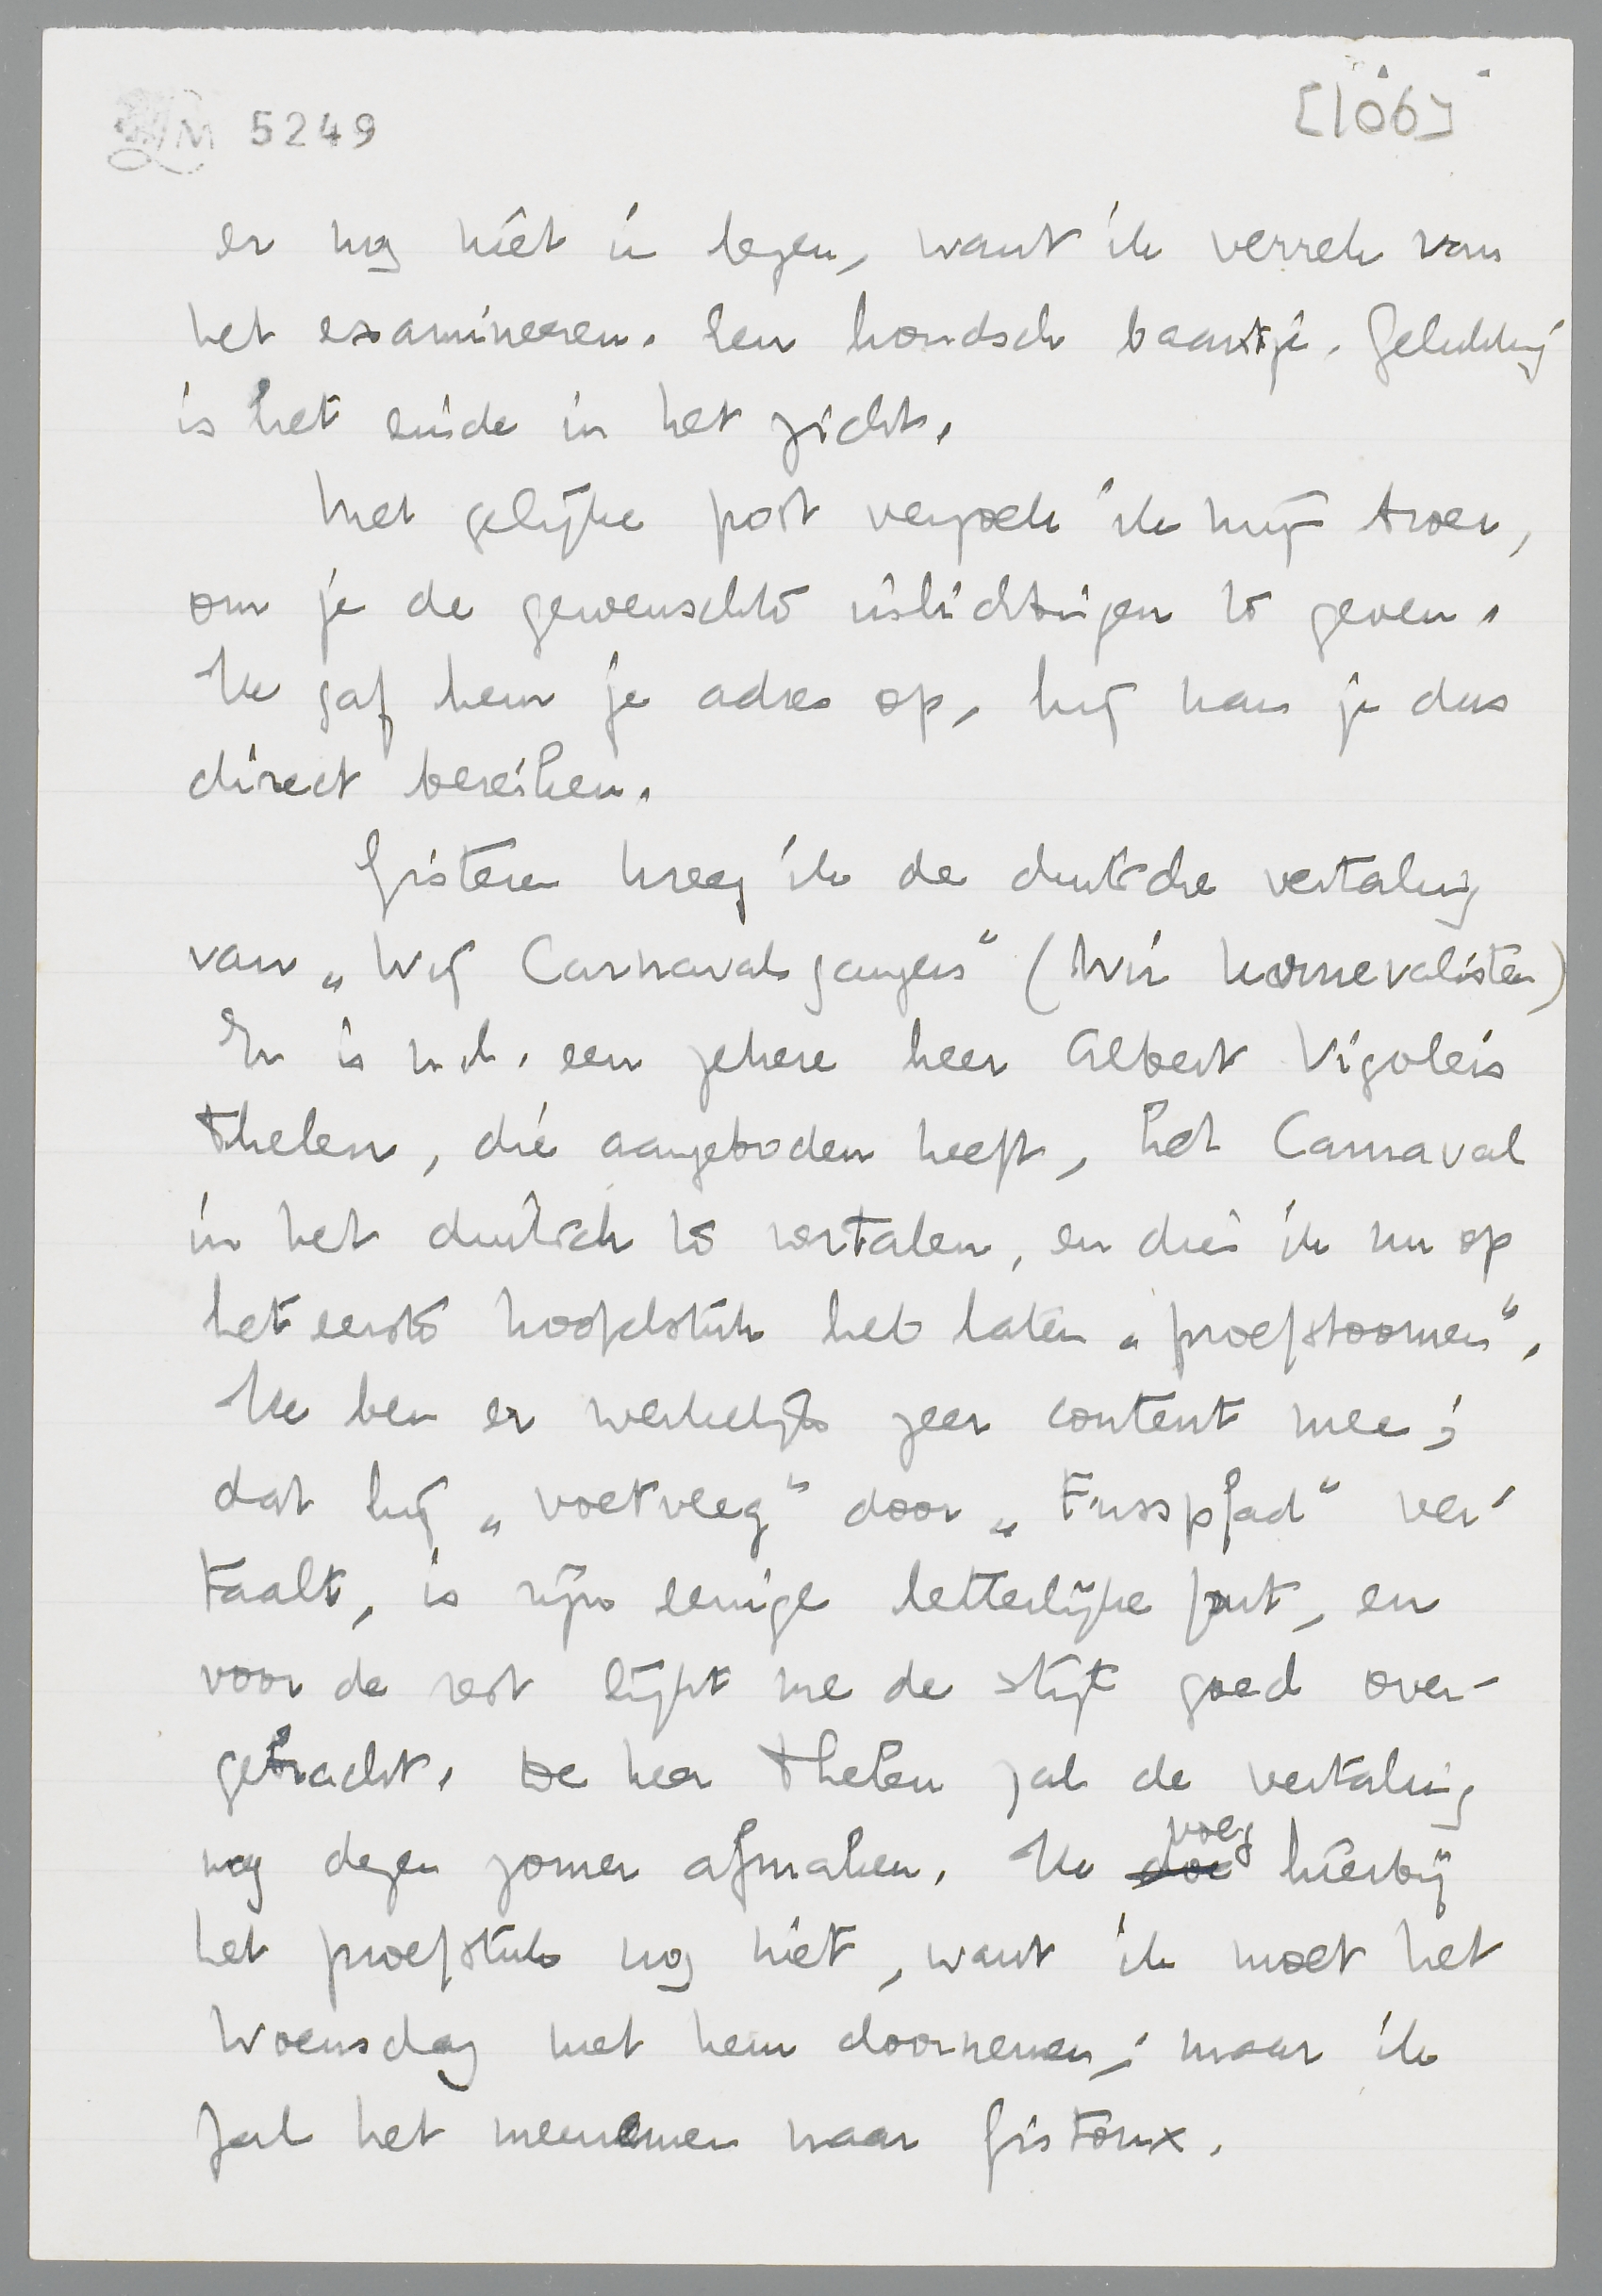 LM 5249
[106]
er nog niet in lezen, want ik verrek van
het examineeren. Een hondsch baantje. Gelukkig
is het einde in het zicht.
Met gelijke post verzoek ik mijn broer,
om je de gewenschte inlichtingen te geven.
Ik gaf hem je adres op, hij kan je dus
direct bereiken.
Gisteren kreeg ik de duitsche vertaling
van „Wij Carnavalsgangers" (Wir Karnevalisten)
Er is n.l. een zekere heer Albert Vigoleis
Thelen, die aangeboden heeft, het Carnaval
in het duitsch te vertalen, en dien ik nu op
het eerste hoofdstuk heb laten „proefstoomen".
Ik ben er werkelijk zeer content mee;
dat hij „voetveeg" door „Fusspfad" ver-
taalt, is zijn eenige letterlijke fout, en
voor de rest lijkt me de stijl goed over-
gebracht. De heer Thelen zal de vertaling
nog dezen zomer afmaken. Ik doe voeg hierbij
het proefstuk nog niet, want ik moet het
Woensdag met hem doornemen; maar ik
zal het meenemen naar Gistoux.